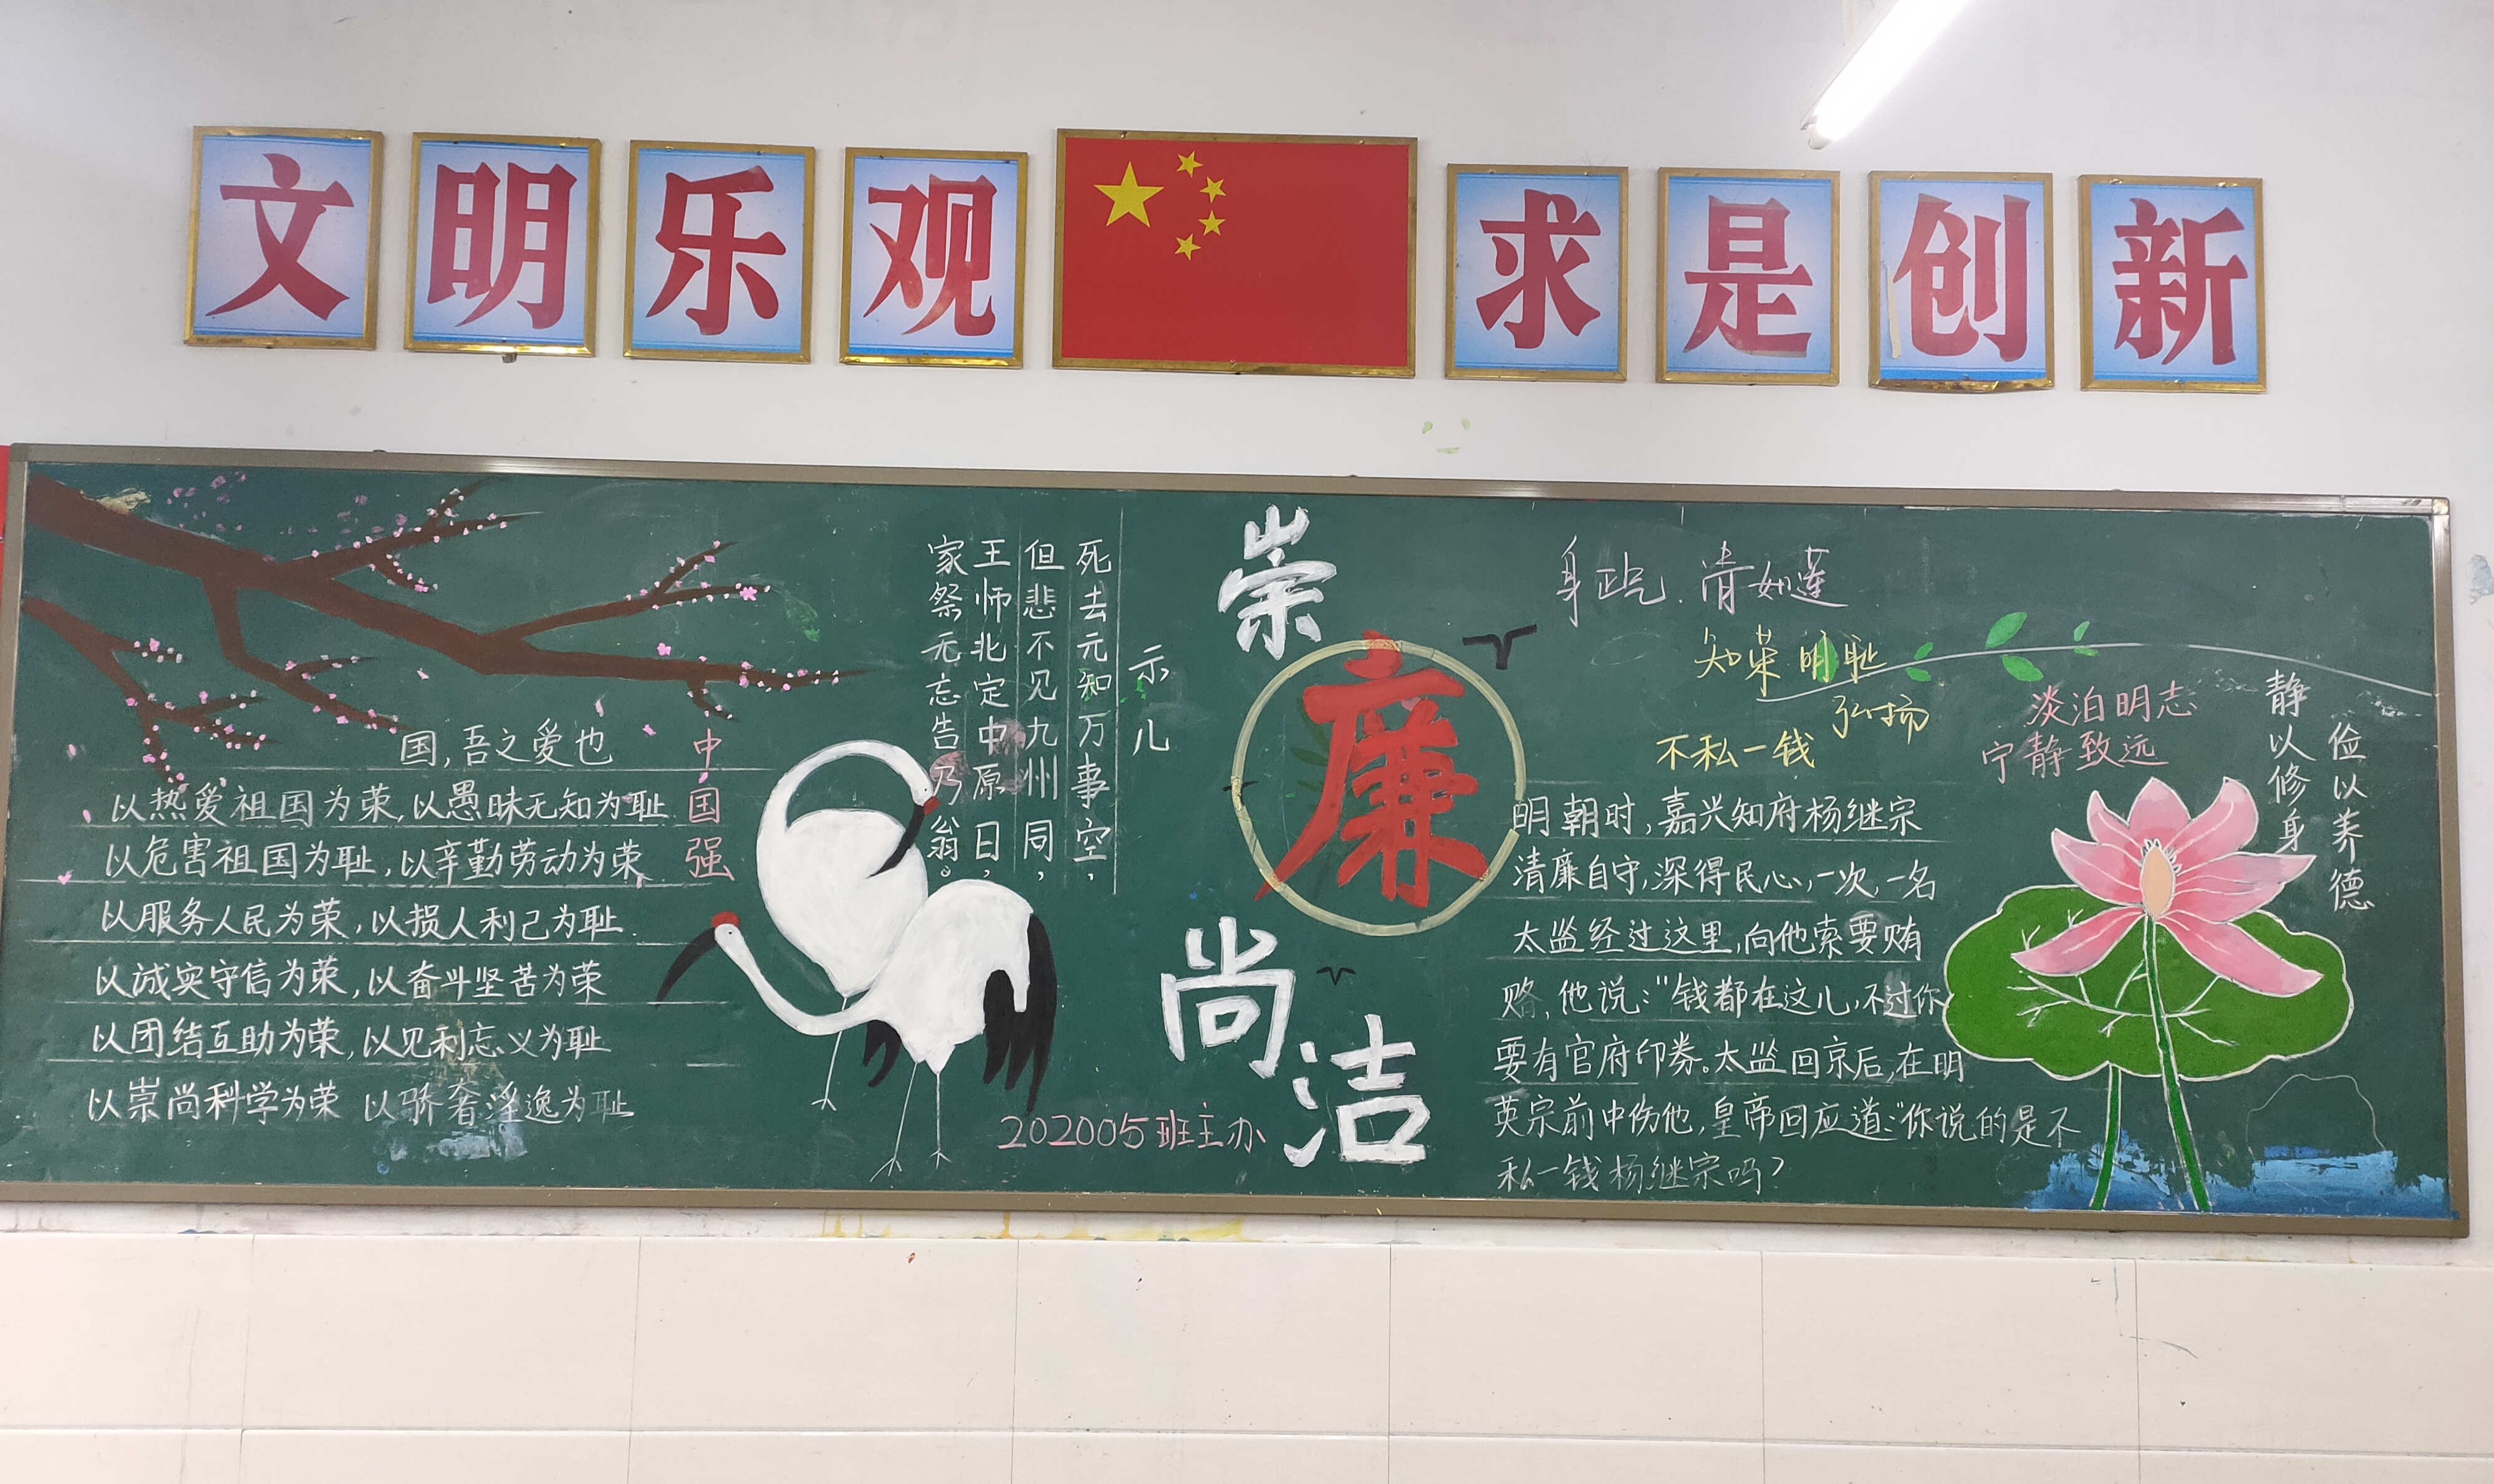 文明乐观
求是创新
国,吾之爱也
以热爱祖国为荣,以愚昧无知为耻
以危害祖国为耻,以辛勤劳动为荣
以服务人民为荣,以损人利己为耻.
以诚实守信为荣,以奋斗坚苦为荣
以团结互助为荣,以见利忘义为耻
以崇尚科学为荣 以骄奢淫逸为耻
中国强
示儿
死去元知万事空,
但悲不见九州同,
王师北定中原日,
家祭无忘告乃翁。
崇
廉
尚
洁
202005班主办
身正气.清如莲
知荣明耻
弘扬
不私一钱
明朝时,嘉兴知府杨继宗
清廉自守,深得民心,一次,一名
太监经过这里,向他索要贿
赂,他说:"钱都在这儿,不过你
要有官府印券。太监回京后,在明
英宗前中伤他,皇帝回应道:"你说的是不
私一钱杨继宗吗?
淡泊明志
宁静致远
静以修身
俭以养德